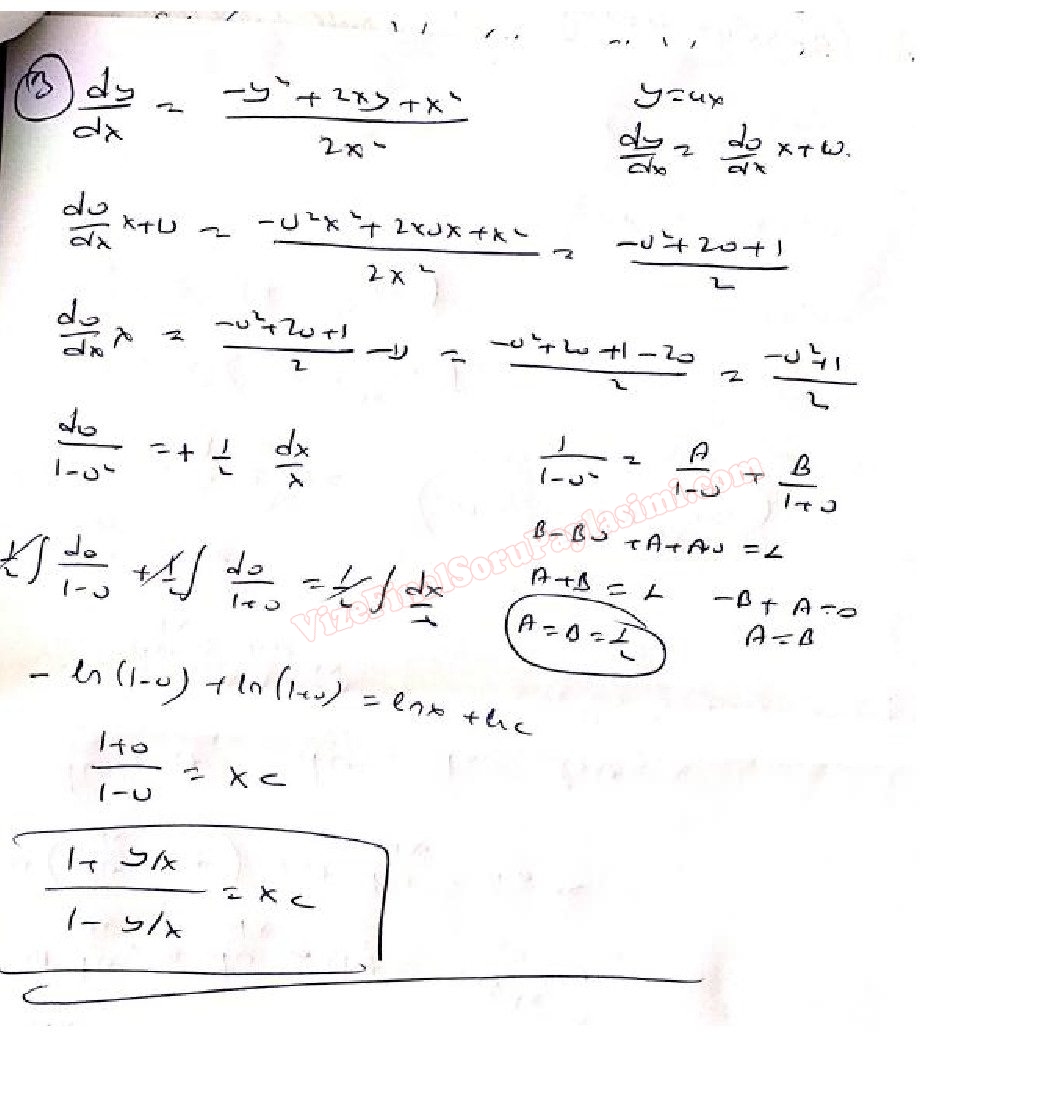 3) dy/dx = (-y² + 2xy + x²)/(2x²)
y=ux
dy/dx = du/dx x + u.
du/dx x+u = (-u²x² + 2xux + x²)/(2x²) = (-u²+2u+1)/2
du/dx x = (-u²+2u+1)/2 - u = (-u²+2u+1-2u)/2 = (-u²+1)/2
du/(1-u²) = + 1/2 dx/x
1/(1-u²) = A/(1-u) + B/(1+u)
B-Bu +A+Au = 1
A+B = 1
-B + A = 0
A=B=1/2
A=B
1/2 ∫ du/(1-u) + 1/2 ∫ du/(1+u) = 1/2 ∫ dx/x
- ln(1-u) + ln(1+u) = lnx + lnc
(1+u)/(1-u) = xc
(1+ y/x)/(1- y/x) = xc
VizeFinalSoruPaylasimi.com